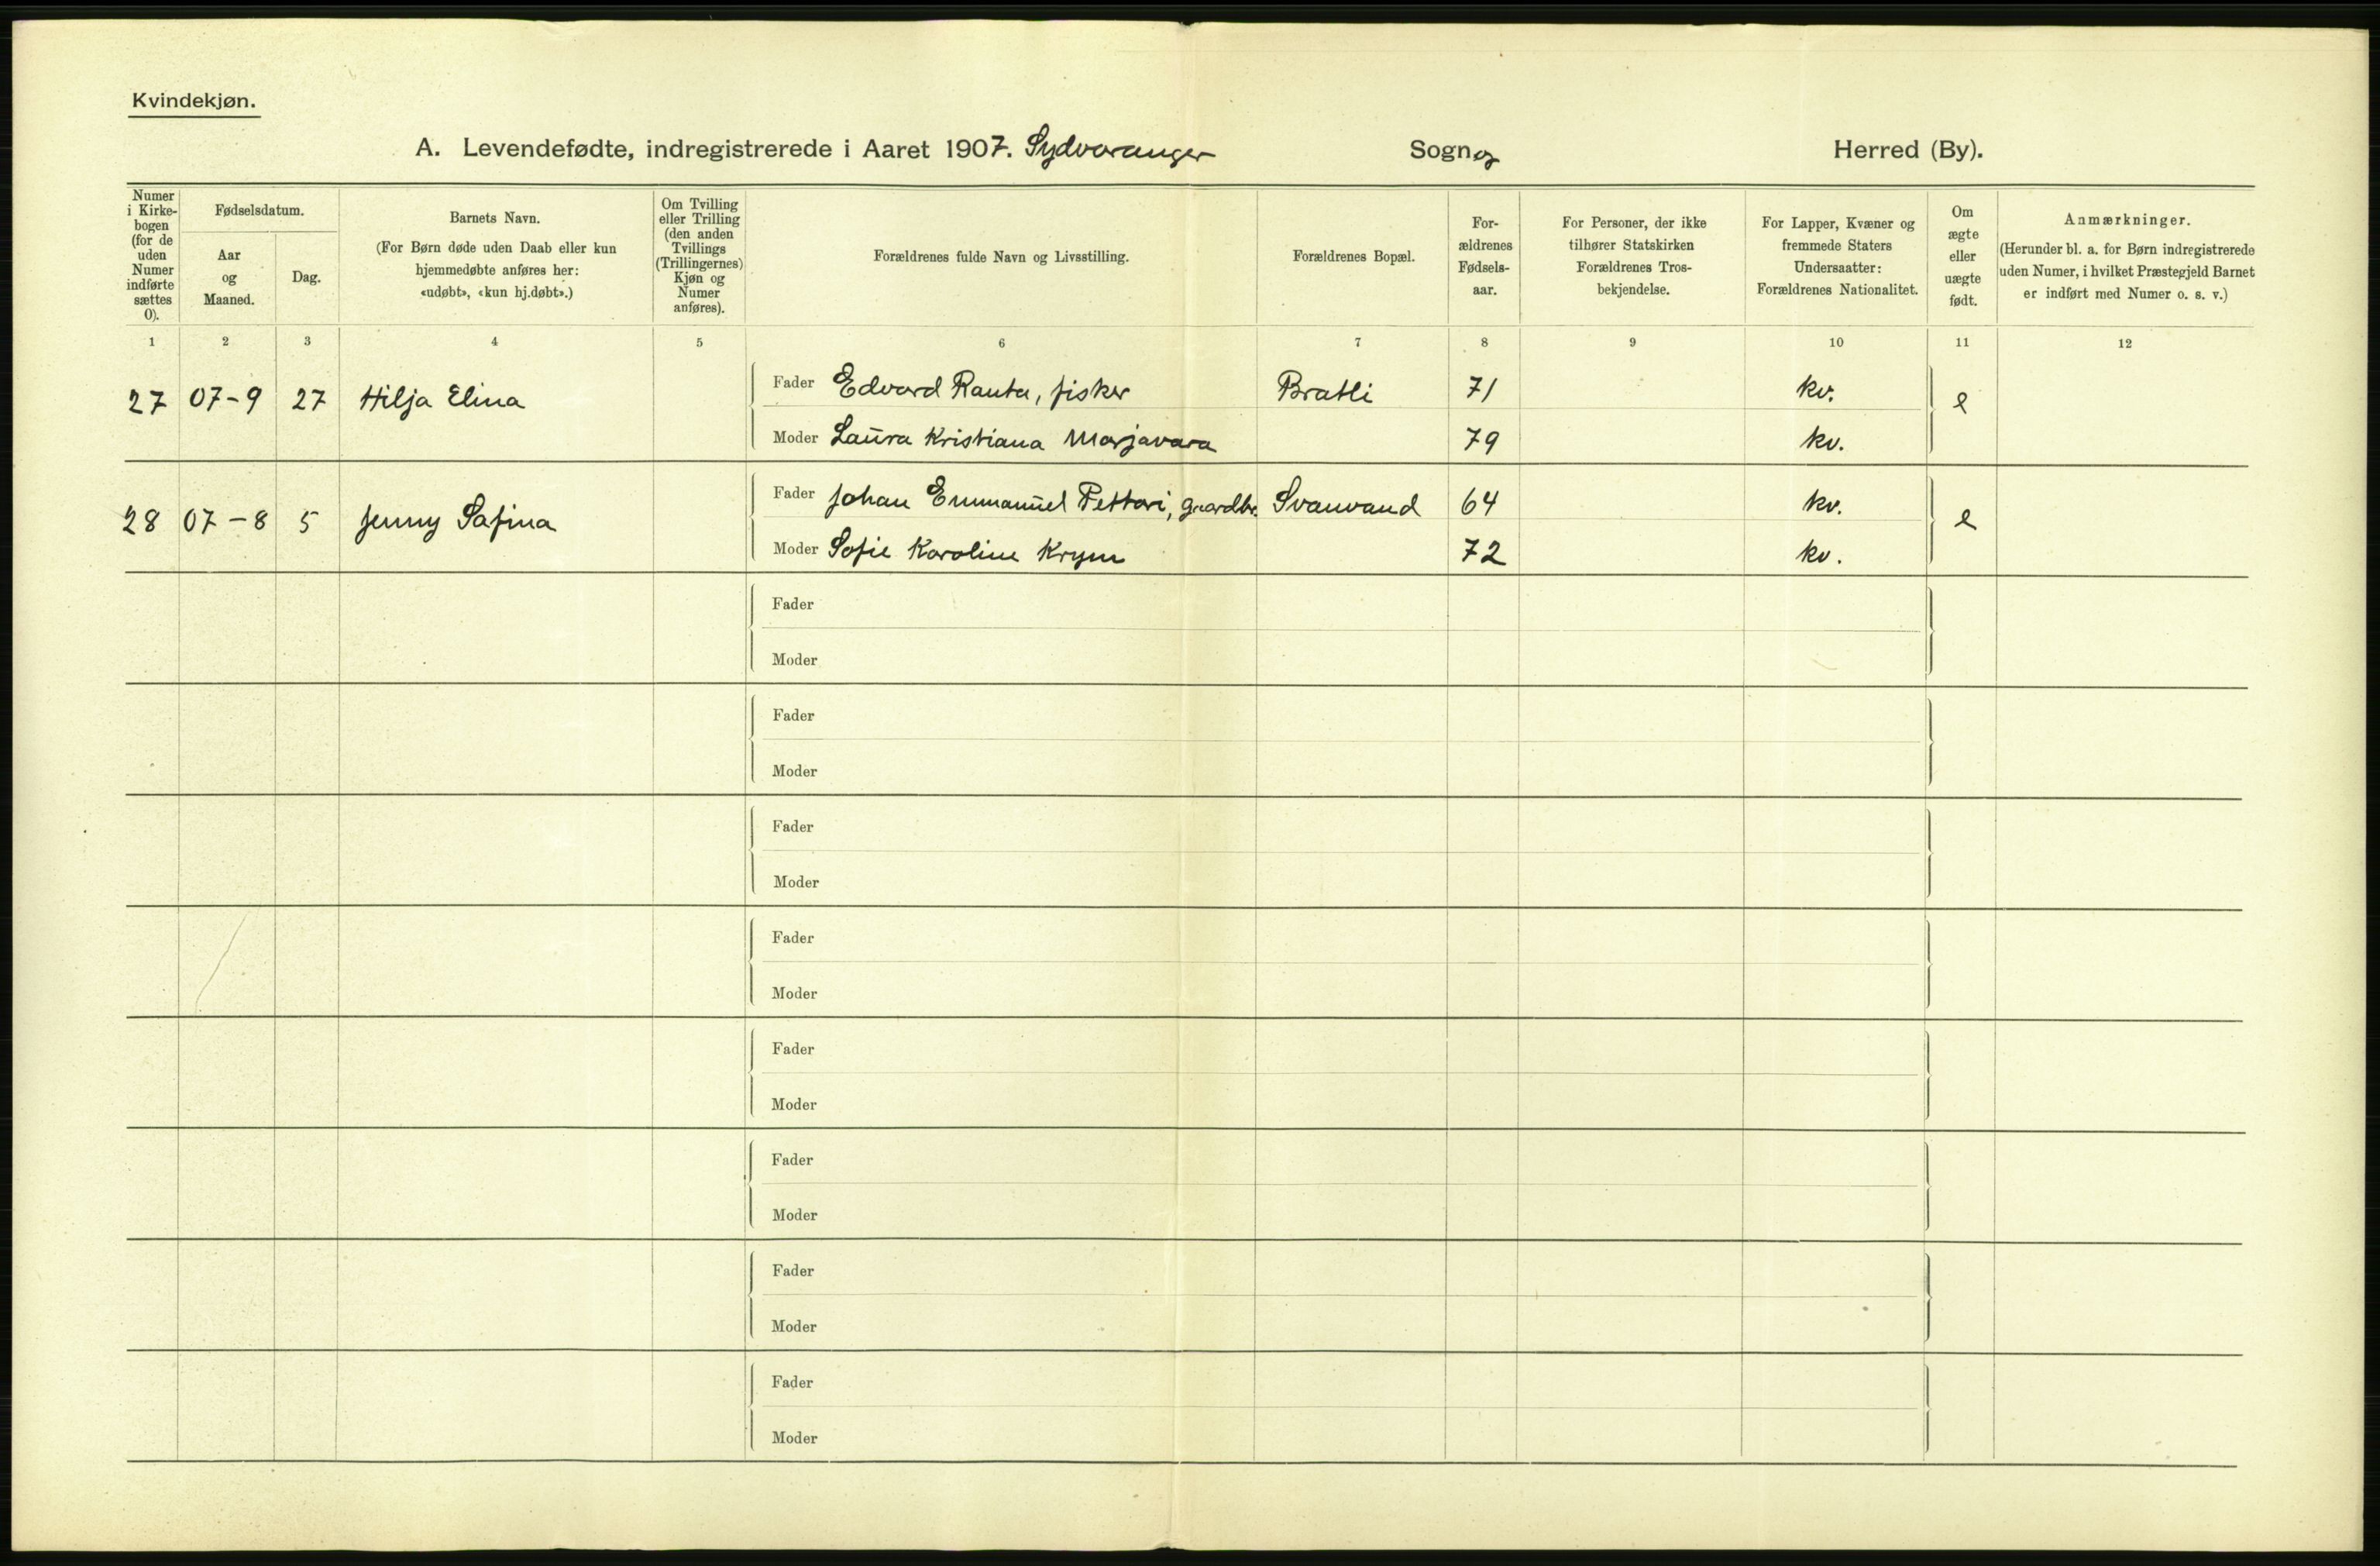 Kvindekjøn.
A. Levendefødte, indregistrerede i Aaret 1907. Sydvaranger Sogn og Herred (By).
Numer i Kirke-bogen (for de uden Numer indførte sættes 0).
Fødselsdatum.
Aar og Maaned.
Dag.
Barnets Navn.
(For Børn døde uden Daab eller kun
hjemmedøbte anføres her:
«udøbt», «kun hj.døbt».)
Om Tvilling eller Trilling (den anden Tvillings (Trillingernes) Kjøn og Numer anføres).
Forældrenes fulde Navn og Livsstilling.
Forældrenes Bopæl.
For-ældrenes Fødsels-aar.
For Personer, der ikke tilhører Statskirken Forældrenes Tros-bekjendelse.
For Lapper, Kvæner og fremmede Staters Undersaatter: Forældrenes Nationalitet.
Om ægte eller uægte født.
Anmærkninger.
(Herunder bl. a. for Børn indregistrerede
uden Numer, i hvilket Præstegjeld Barnet
er indført med Numer o. s. v.)
1 2 3 4 5 6 7 8 9 10 11 12
27 07-9 27 Hilja Elina Fader Edvard Ranta, fisker Bratli 71 kv. e
Moder Laura Kristiana Marjavara 79 kv.
28 07-8 5 Jenny Safina Fader Johan Emmanuel Pettari, gaardbr. Svanvand 64 kv. e
Moder Sofie Karoline Krym 72 kv.
Fader
Moder
Fader
Moder
Fader
Moder
Fader
Moder
Fader
Moder
Fader
Moder
Fader
Moder
Fader
Moder